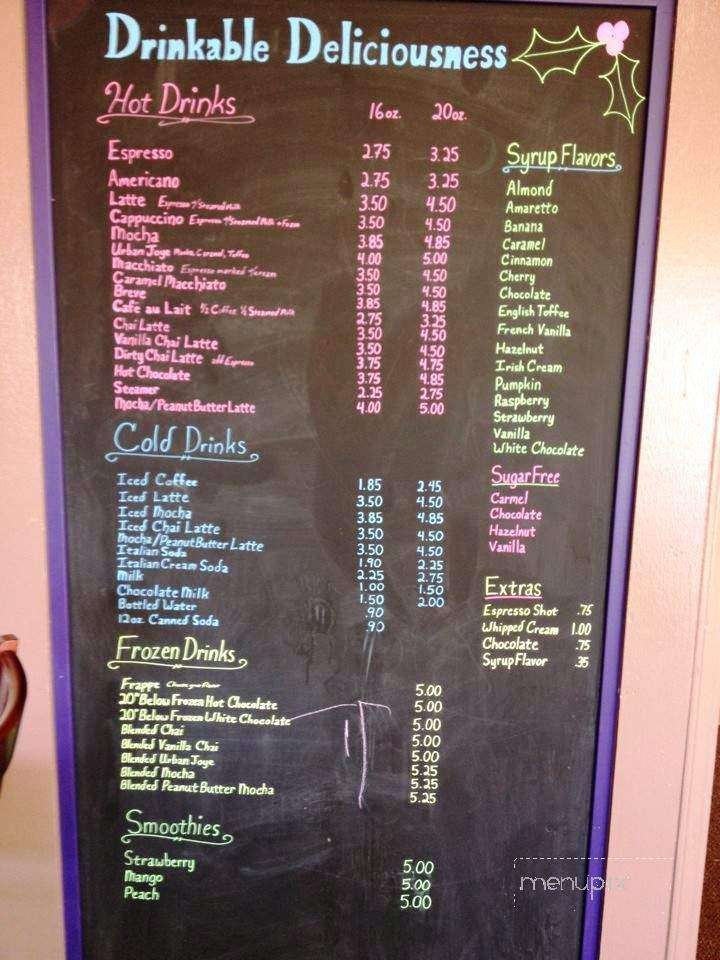 Drinkable Deliciousness
Hot Drinks 16oz. 20oz.
Espresso 2.75 3.25
Americano 2.75 3.25
Latte Espresso + Steamed Milk 3.50 4.50
Cappuccino Espresso + Steamed Milk + Foam 3.50 4.50
Mocha 3.85 4.85
Urban Joye Mocha, Caramel, Toffee 4.00 5.00
Macchiato Espresso marked 3.50 4.50
Caramel Macchiato 3.50 4.50
Breve 3.85 4.85
Café au Lait ½ Coffee ½ Steamed Milk 2.75 3.25
Chai Latte 3.50 4.50
Vanilla Chai Latte 3.50 4.50
Dirty Chai Latte add Espresso 3.75 4.75
Hot Chocolate 3.75 4.85
Steamer 2.25 2.75
Mocha/Peanut Butter Latte 4.00 5.00
Cold Drinks
Iced Coffee 1.85 2.45
Iced Latte 3.50 4.50
Iced Mocha 3.85 4.85
Iced Chai Latte 3.50 4.50
Mocha/Peanut Butter Latte 3.50 4.50
Italian Soda 1.90 2.25
Italian Cream Soda 2.25 2.75
Milk 1.00 1.50
Chocolate Milk 1.50 2.00
Bottled Water .90
12oz. Canned Soda .90
Frozen Drinks
Frappe 5.00
20° Below Frozen Hot Chocolate 5.00
20° Below Frozen White Chocolate 5.00
Blended Chai 5.00
Blended Vanilla Chai 5.00
Blended Urban Joye 5.25
Blended Mocha 5.25
Blended Peanut Butter Mocha 5.25
Smoothies
Strawberry 5.00
Mango 5.00
Peach 5.00
Syrup Flavors
Almond
Amaretto
Banana
Caramel
Cinnamon
Cherry
Chocolate
English Toffee
French Vanilla
Hazelnut
Irish Cream
Pumpkin
Raspberry
Strawberry
Vanilla
White Chocolate
Sugar Free
Carmel
Chocolate
Hazelnut
Vanilla
Extras
Espresso Shot .75
Whipped Cream 1.00
Chocolate .75
Syrup Flavor .35
menupix